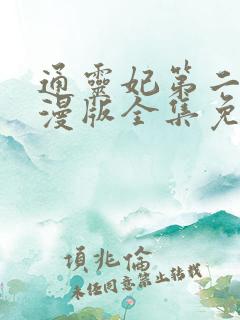 通靈妃第二
漫版全集免
頃兆倫
未任同意禁止转载